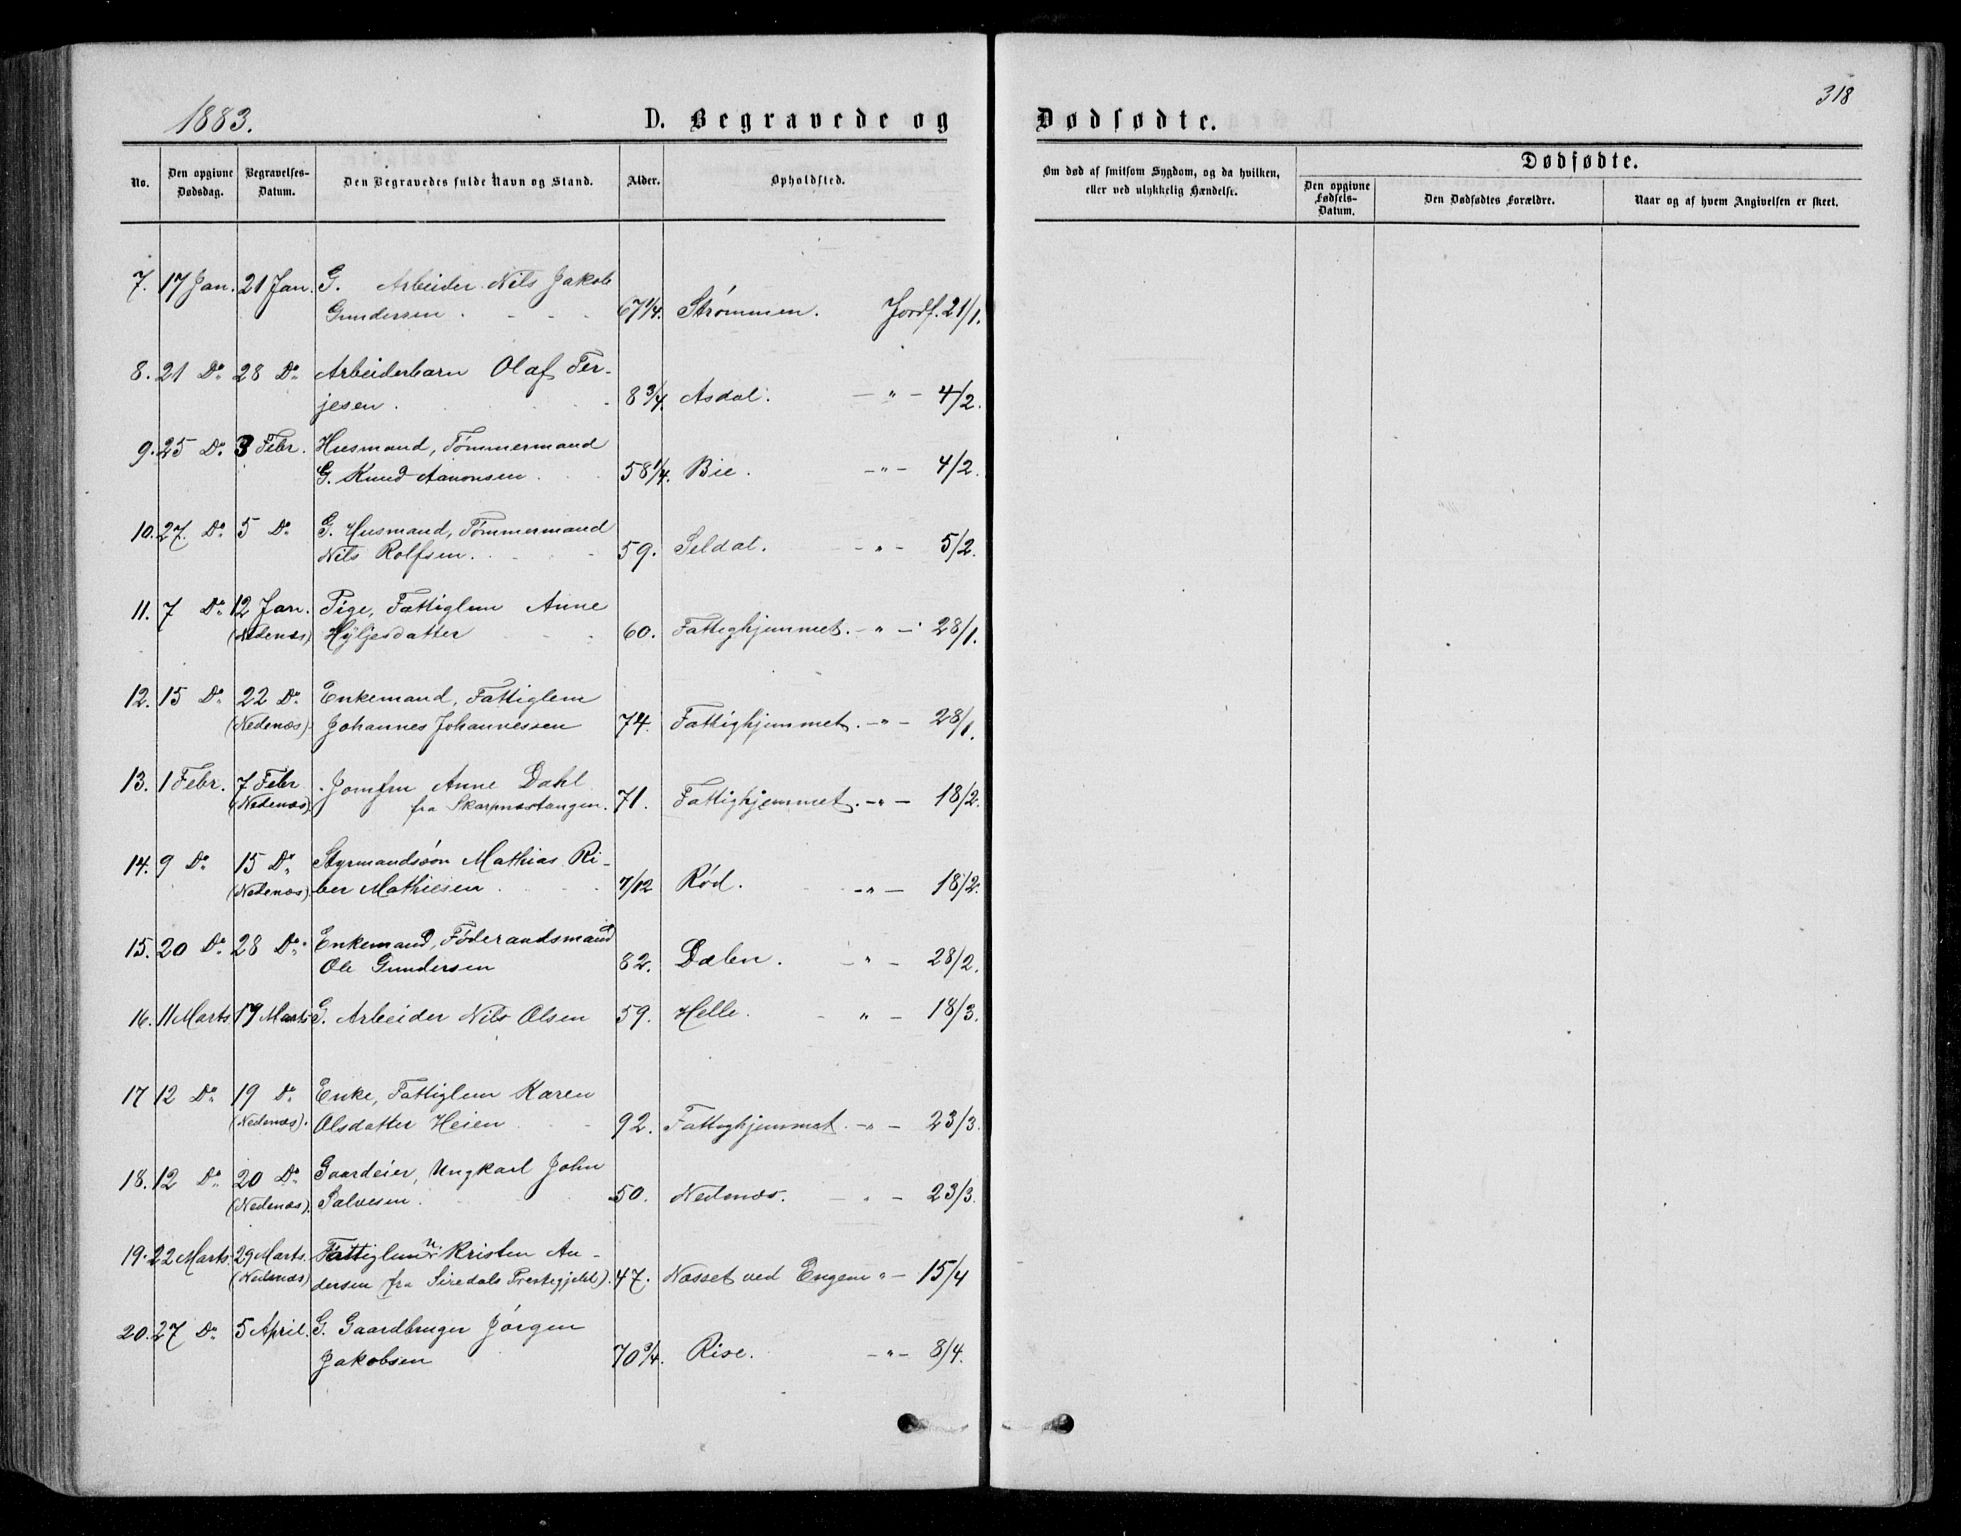 1883.
D. Begravede og
Dødfødte.
318
No.
Den opgivne Dødsdag.
Begravelses-Datum.
Den Begravedes fulde Navn og Stand.
Alder.
Opholdsted.
Om død af smitsom Sygdom, og da hvilken,
eller ved ulykkelig Hændelse.
Dødfødte.
Den opgivne Fødsels-Datum.
Den Dødfødtes Forældre.
Naar og af hvem Angivelsen er skeet.
7. 17 Jan. 21 Jan. G. Arbeider Nils Jakob
Gundersen . 67 1/4. Strømmen. Jordf. 21/1.
8. 21 Do 28 Do Arbeiderbarn Olaf Ter-
jesen . 8 3/4. Asdal. — " — 4/2.
9. 25 Do 3 Febr. Husmand, Tømmermand
G. Knud Aanonsen . 58 1/4. Bie. — " — 4/2.
10. 27. Do 5 Do G. Husmand, Tømmermand
Nils Rolfsen. 59. Seldal. — " — 5/2.
11. 7 Do 12 Jan. Pige, Fattiglem Anne
(Nedenæs) Hyljesdatter 60. Fattighjemmet. — " — 28/1.
12. 15 Do 22 Do Enkemand, Fattiglem
(Nedenæs). Johannes Johannessen 74. Fattighjemmet. — " — 28/1.
13. 1 Febr. 7 Febr. Jomfru Anne Dahl
(Nedenæs). fra Skarpnæstangen. 71. Fattighjemmet. — " — 18/2.
14. 9 Do 15 Do Styrmandssøn Mathias Ri-
(Nedenæs). ber Mathiesen . 7/12 Rød. — " — 18/2.
15. 20 Do 28 Do Enkemand, Föderaadsmand
Ole Gundersen 82. Dælen. — " — 28/2.
16. 11 Marts 19 Marts G. Arbeider Nils Olsen 59. Helle. — " — 18/3.
17 12 Do 19 Do Enke, Fattiglem Karen
(Nedenæs). Olsdatter Heien 92. Fattighjemmet. — " — 23/3.
18. 12 Do 20 Do Gaardeier, Ungkarl John
(Nedenæs). Salvesen. 50. Nedenæs. — " — 23/3.
19. 22 Marts. 29 Marts. Fattiglem Kristen An-
(Nedenæs) dersen fra Siredals Prestegjeld). 47. Næsset ved Engene " — 15/4
20. 27 Do 5 April. G. Gaardbruger Jörgen
Jakobsen 70 3/4. Rise. — " — 8/4.